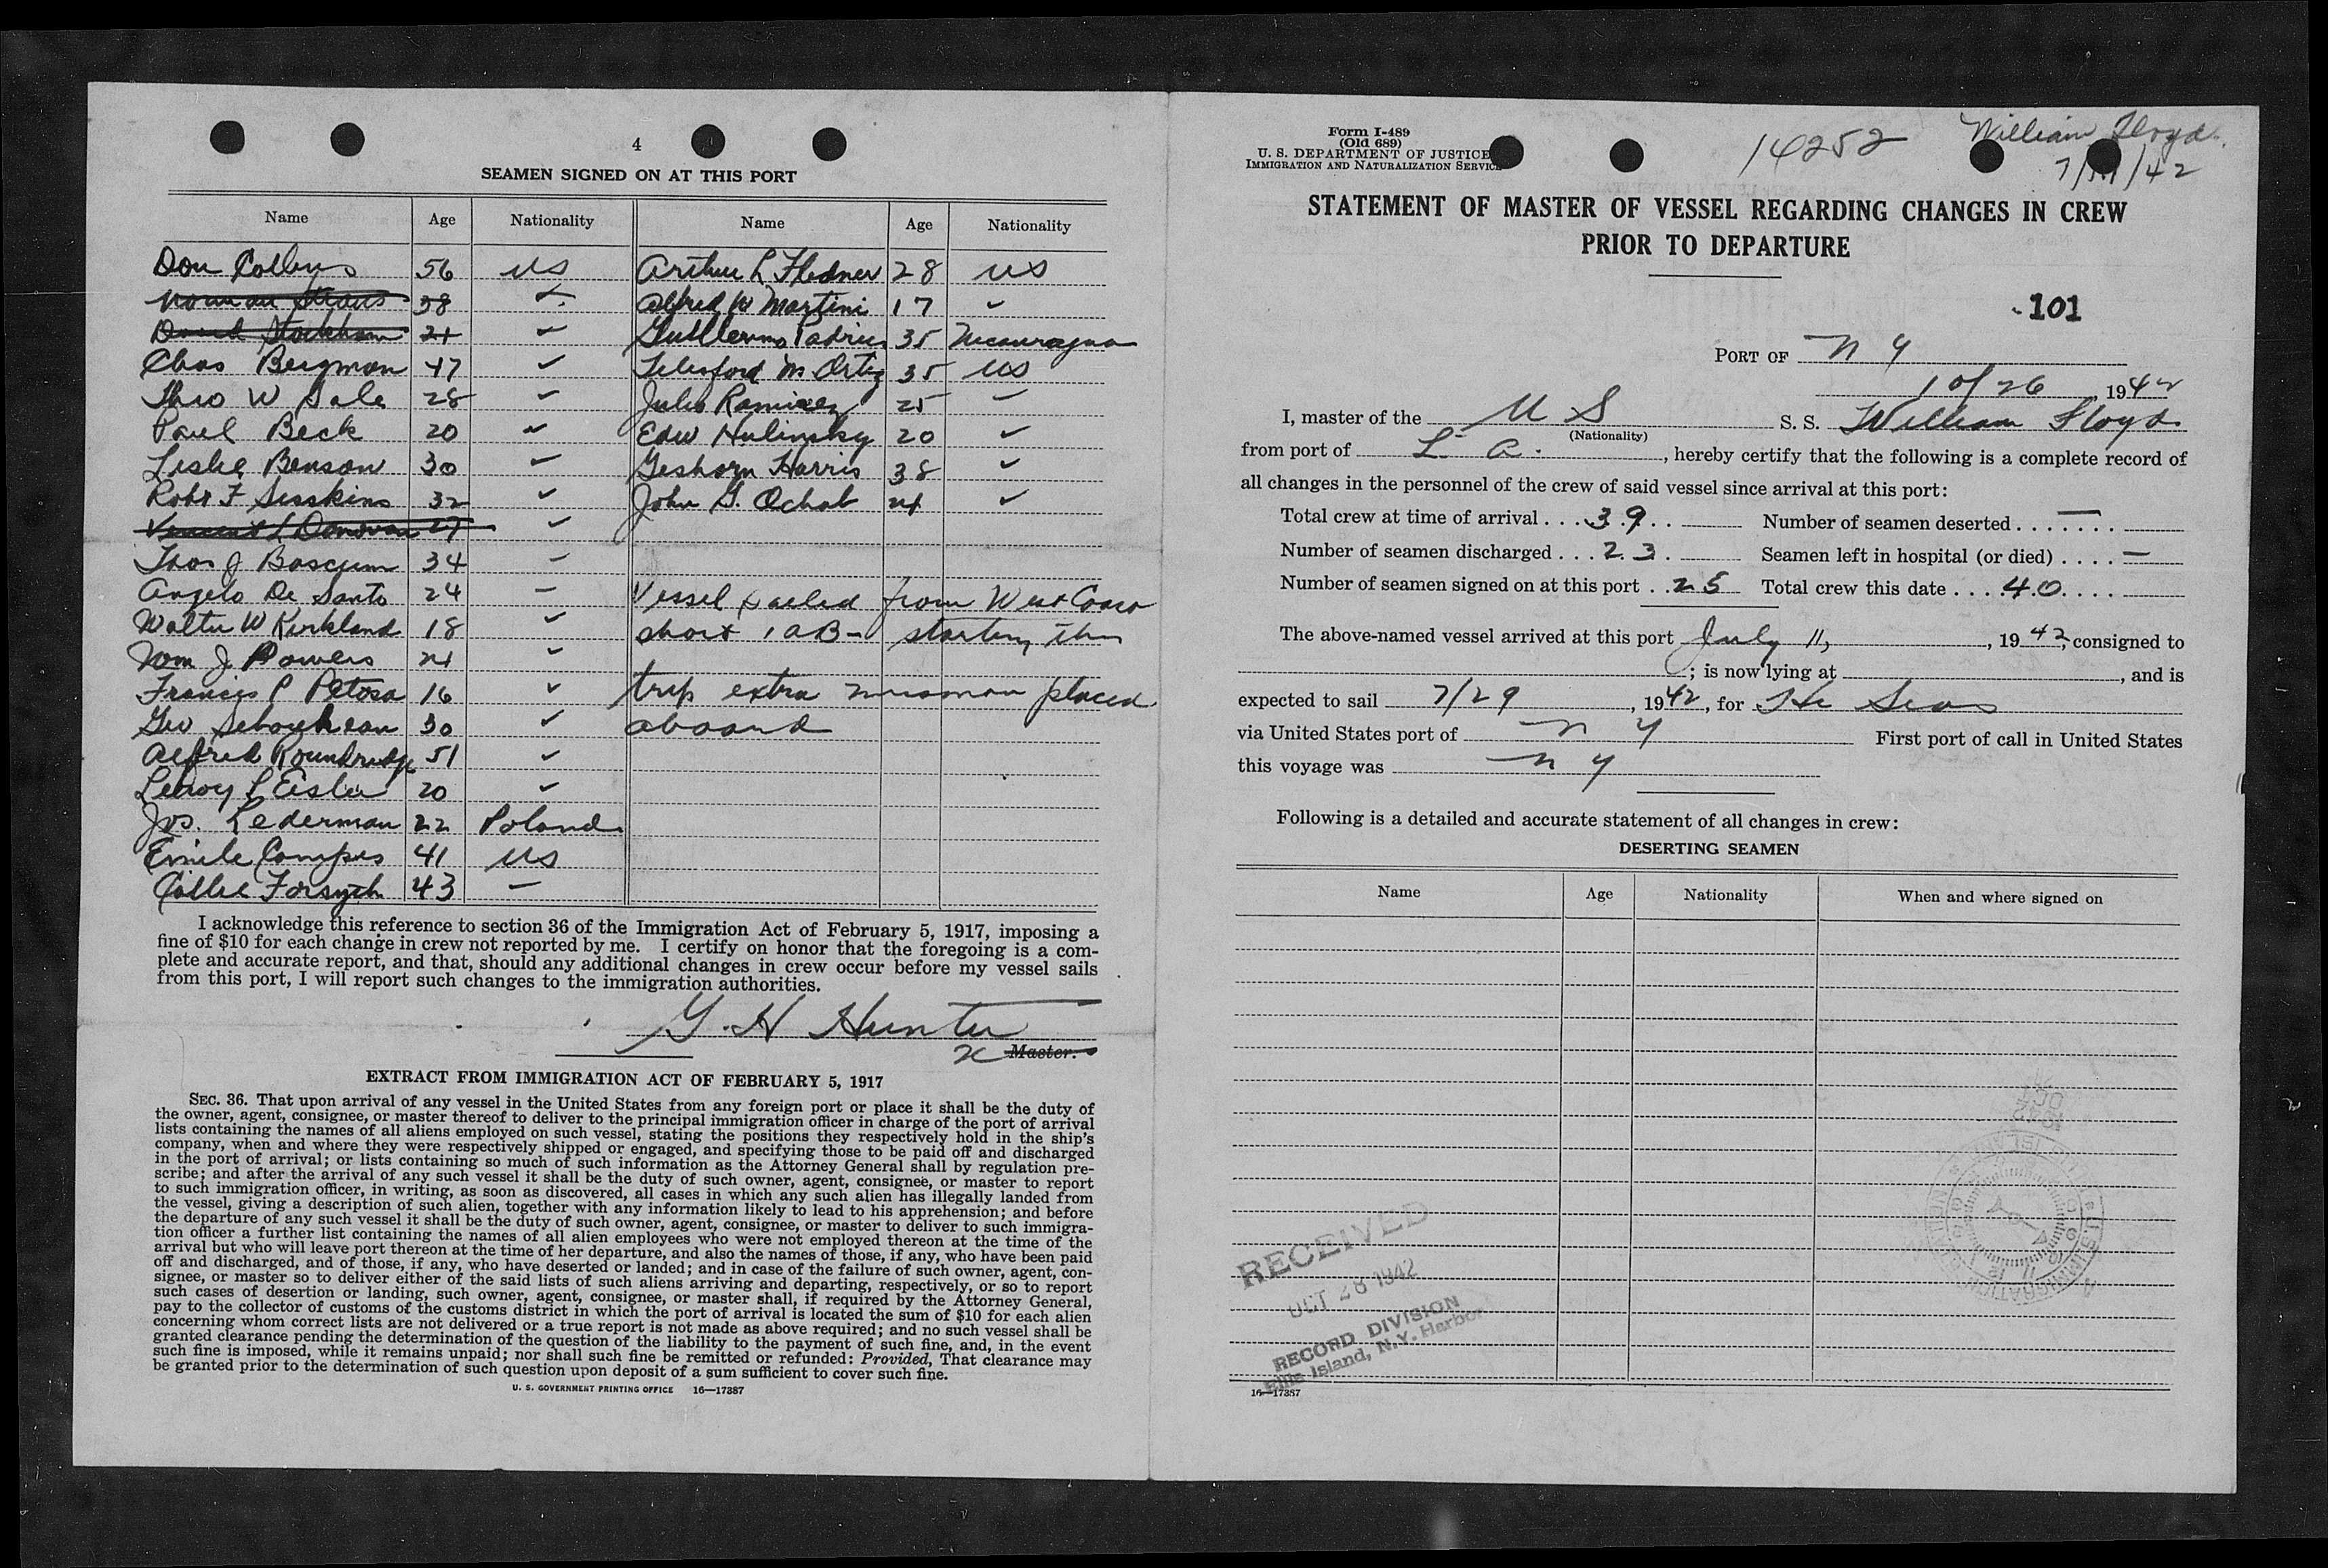 4
SEAMEN SIGNED ON AT THIS PORT
Name Age Nationality Name Age Nationality
Don Collins 56 US
38
21
Chas Bergman 47
Theo W Sale 28
Paul Beck 20
Leslie Benson 30
Robt F Sisskins 32
Vincent L Donovan 27
Thos J Boscum 34
Angelo De Santo 24
Walter W Kirkland 18
Wm J Powers 21
Francis P Petosa 16
Geo 30
Alfred Roundredge 51
Leroy L Eisler 20
Jos. Lederman 22 Poland
Emile Compes 41 US
Callie Forsyth 43 —
Arthur L Fledner 28 US
Alfred W Martini 17
Guillermo 35
Telesford M Ortiz 35 US
Julio Ramirez 25
Edw Hulinsky 20
Geshorn Harris 38
John G. Ochab 21
Vessel sailed from West Coast
short 1 AB - starting this
trip extra messman placed
aboard
I acknowledge this reference to section 36 of the Immigration Act of February 5, 1917, imposing a
fine of $10 for each change in crew not reported by me. I certify on honor that the foregoing is a com-
plete and accurate report, and that, should any additional changes in crew occur before my vessel sails
from this port, I will report such changes to the immigration authorities.
G. H Hunter
Master.
EXTRACT FROM IMMIGRATION ACT OF FEBRUARY 5, 1917
SEC. 36. That upon arrival of any vessel in the United States from any foreign port or place it shall be the duty of
the owner, agent, consignee, or master thereof to deliver to the principal immigration officer in charge of the port of arrival
lists containing the names of all aliens employed on such vessel, stating the positions they respectively hold in the ship's
company, when and where they were respectively shipped or engaged, and specifying those to be paid off and discharged
in the port of arrival; or lists containing so much of such information as the Attorney General shall by regulation pre-
scribe; and after the arrival of any such vessel it shall be the duty of such owner, agent, consignee, or master to report
to such immigration officer, in writing, as soon as discovered, all cases in which any such alien has illegally landed from
the vessel, giving a description of such alien, together with any information likely to lead to his apprehension; and before
the departure of any such vessel it shall be the duty of such owner, agent, consignee, or master to deliver to such immigra-
tion officer a further list containing the names of all alien employees who were not employed thereon at the time of the
arrival but who will leave port thereon at the time of her departure, and also the names of those, if any, who have been paid
off and discharged, and of those, if any, who have deserted or landed; and in case of the failure of such owner, agent, con-
signee, or master so to deliver either of the said lists of such aliens arriving and departing, respectively, or so to report
such cases of desertion or landing, such owner, agent, consignee, or master shall, if required by the Attorney General,
pay to the collector of customs of the customs district in which the port of arrival is located the sum of $10 for each alien
concerning whom correct lists are not delivered or a true report is not made as above required; and no such vessel shall be
granted clearance pending the determination of the question of the liability to the payment of such fine, and, in the event
such fine is imposed, while it remains unpaid; nor shall such fine be remitted or refunded: Provided, That clearance may
be granted prior to the determination of such question upon deposit of a sum sufficient to cover such fine.
U. S. GOVERNMENT PRINTING OFFICE 16—17387
Form I-489
(Old 689)
U. S. DEPARTMENT OF JUSTICE
IMMIGRATION AND NATURALIZATION SERVICE
14252
William Floyd.
7/11/42
STATEMENT OF MASTER OF VESSEL REGARDING CHANGES IN CREW
PRIOR TO DEPARTURE
101
PORT OF N Y
10/26, 1942
I, master of the U S S. S. William Floyd
(Nationality)
from port of L. A., hereby certify that the following is a complete record of
all changes in the personnel of the crew of said vessel since arrival at this port:
Total crew at time of arrival . . . 39 . . Number of seamen deserted . . . . — . . .
Number of seamen discharged . . . 23 . Seamen left in hospital (or died) . . . . —
Number of seamen signed on at this port . . 25 Total crew this date . . . . 40 . . . .
The above-named vessel arrived at this port July 11, 1942, consigned to
; is now lying at , and is
expected to sail 7/29, 1942, for The Seas
via United States port of N Y First port of call in United States
this voyage was N Y
Following is a detailed and accurate statement of all changes in crew:
DESERTING SEAMEN
Name Age Nationality When and where signed on
RECEIVED
OCT 28 1942
RECORD DIVISION
Ellis Island, N.Y. Harbor
16—17387